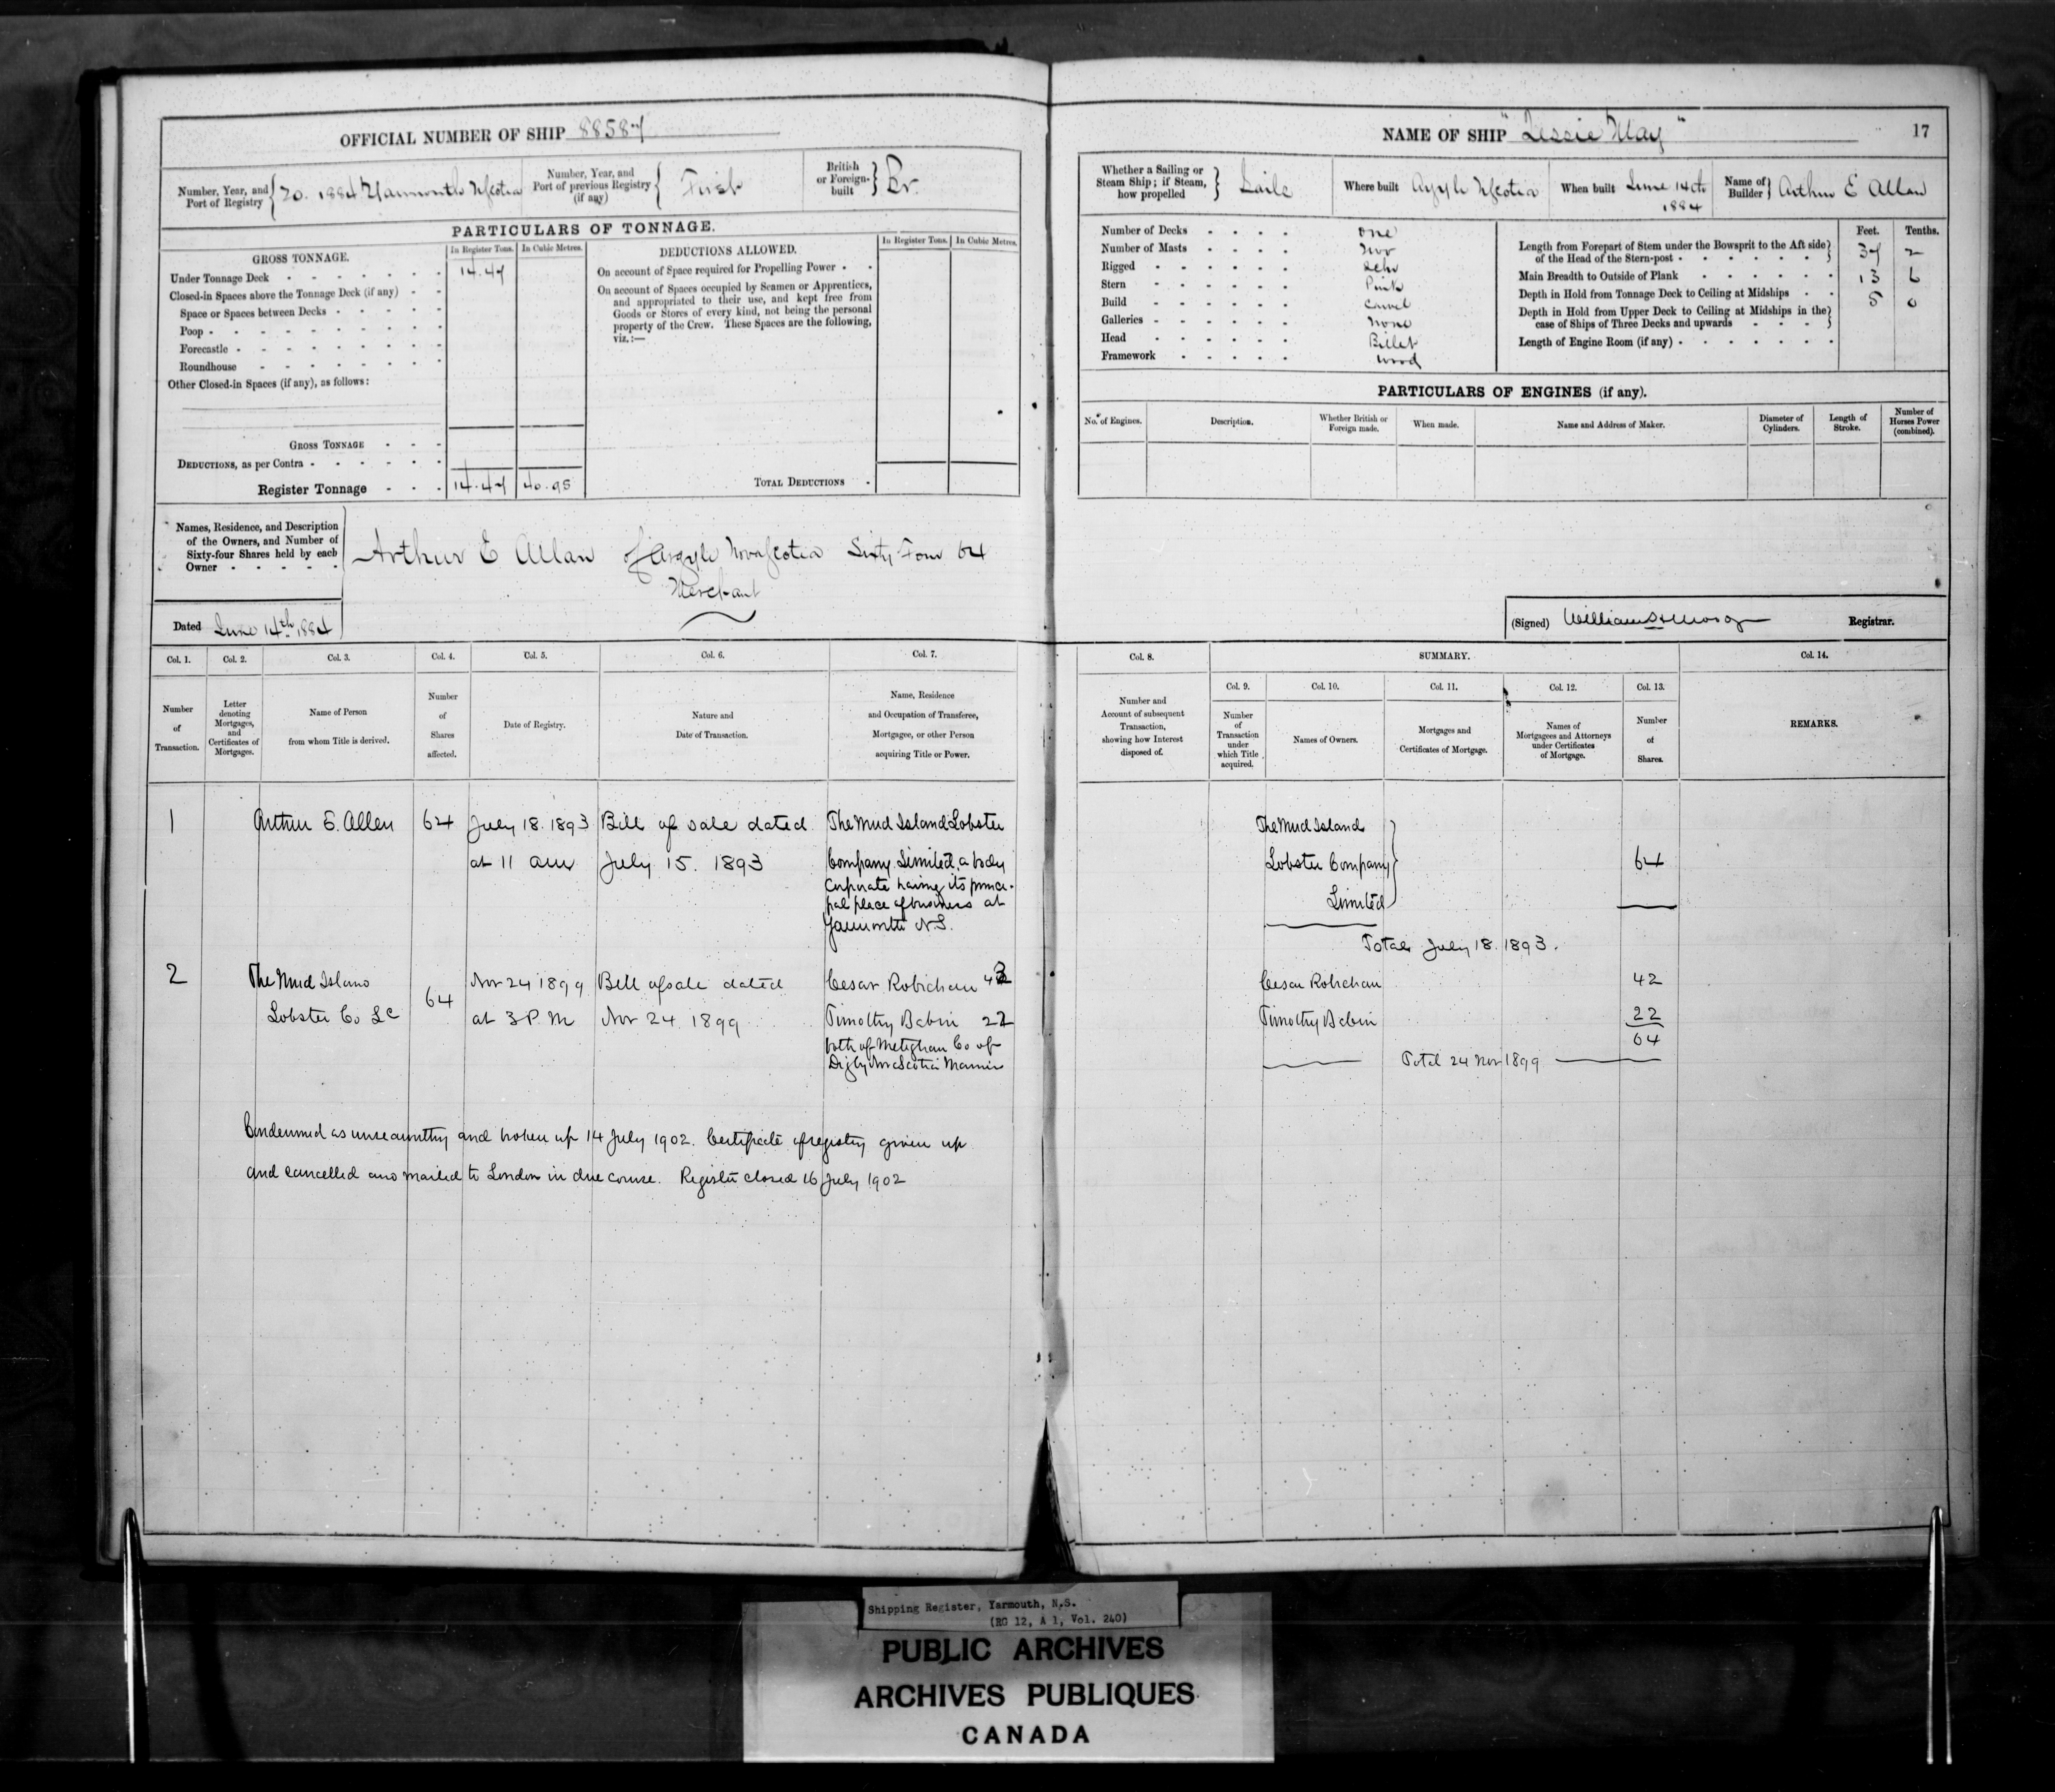 OFFICIAL NUMBER OF SHIP 88587
Number, Year, and Port of Registry 20. 1884 Yarmouth NScotia
Number, Year, and Port of previous Registry (if any) First
British or Foreign-built Br.
PARTICULARS OF TONNAGE.
GROSS TONNAGE.
In Register Tons. In Cubic Metres.
Under Tonnage Deck 14.47
Closed-in Spaces above the Tonnage Deck (if any)
Space or Spaces between Decks
Poop
Forecastle
Roundhouse
Other Closed-in Spaces (if any), as follows:
GROSS TONNAGE
DEDUCTIONS, as per Contra
Register Tonnage 14.47 40.95
DEDUCTIONS ALLOWED.
In Register Tons. In Cubic Metres.
On account of Space required for Propelling Power
On account of Spaces occupied by Seamen or Apprentices,
and appropriated to their use, and kept free from
Goods or Stores of every kind, not being the personal
property of the Crew. These Spaces are the following,
viz.:—
TOTAL DEDUCTIONS
Names, Residence, and Description
of the Owners, and Number of
Sixty-four Shares held by each
Owner
Arthur E Allan of Argyle Nova Scotia Sixty Four 64
Merchant
Dated June 14th 1884
Col. 1. Col. 2. Col. 3. Col. 4. Col. 5. Col. 6. Col. 7.
Number of Transaction.
Letter denoting Mortgages, and Certificates of Mortgages.
Name of Person from whom Title is derived.
Number of Shares affected.
Date of Registry.
Nature and Date of Transaction.
Name, Residence and Occupation of Transferee, Mortgagee, or other Person acquiring Title or Power.
1 Arthur E. Allen 64 July 18. 1893 Bill of sale dated The Mud Island Lobster
at 11 am July 15. 1893 Company Limited, a body
corporate having its princi-
pal place of business at
Yarmouth N.S.
2 The Mud Island 64 Nov 24 1899 Bill of sale dated Cesar Robichau 42
Lobster Co Ld at 3 P.M Nov 24 1899 Timothy Babin 22
both of Meteghan Co of
Digby Nova Scotia Mariners
Condemned as unseaworthy and broken up 14 July 1902. Certificate of registry given up
and cancelled and mailed to London in due course. Register closed 16 July 1902
NAME OF SHIP "Lessie May" 17
Whether a Sailing or Steam Ship; if Steam, how propelled Sails
Where built Argyle NScotia
When built June 14th 1884
Name of Builder Arthur E Allan
Number of Decks one
Number of Masts Two
Rigged Schr
Stern Pink
Build Carvel
Galleries None
Head Billet
Framework Wood
Feet. Tenths.
Length from Forepart of Stem under the Bowsprit to the Aft side
of the Head of the Stern-post 37 2
Main Breadth to Outside of Plank 13 6
Depth in Hold from Tonnage Deck to Ceiling at Midships 5 0
Depth in Hold from Upper Deck to Ceiling at Midships in the
case of Ships of Three Decks and upwards
Length of Engine Room (if any)
PARTICULARS OF ENGINES (if any).
No. of Engines. Description. Whether British or Foreign made. When made. Name and Address of Maker. Diameter of Cylinders. Length of Stroke. Number of Horses Power (combined).
(Signed) Registrar.
Col. 8. SUMMARY. Col. 14.
Col. 9. Col. 10. Col. 11. Col. 12. Col. 13.
Number and Account of subsequent Transaction, showing how Interest disposed of.
Number of Transaction under which Title acquired.
Names of Owners.
Mortgages and Certificates of Mortgage.
Names of Mortgagees and Attorneys under Certificates of Mortgage.
Number of Shares.
REMARKS.
The Mud Island
Lobster Company 64
Limited
Total July 18. 1893.
Cesar Robichau 42
Timothy Babin 22
64
Total 24 Nov 1899
Shipping Register, Yarmouth, N.S.
(RG 12, A 1, Vol. 240)
PUBLIC ARCHIVES
ARCHIVES PUBLIQUES
CANADA